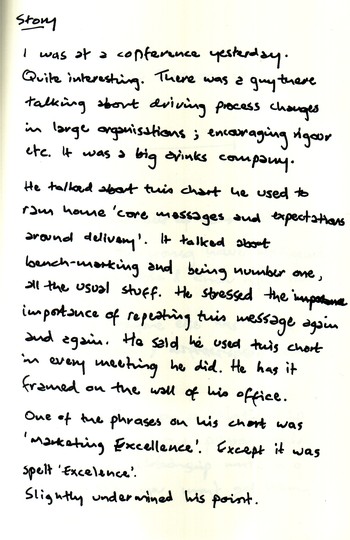 Story
I was at a conference yesterday.
Quite interesting. There was a guy there
talking about driving process changes
in large organisations; encouraging rigour
etc. It was a big drinks company.
He talked about this chart he used to
ram home 'core messages and expectations
around delivery'. It talked about
bench-marking and being number one,
all the usual stuff. He stressed the importance
importance of repeating this message again
and again. He said he used this chart
in every meeting he did. He has it
framed on the wall of his office.
One of the phrases on his chart was
'Marketing Excellence'. Except it was
spelt 'Excelence'.
Slightly undermined his point.